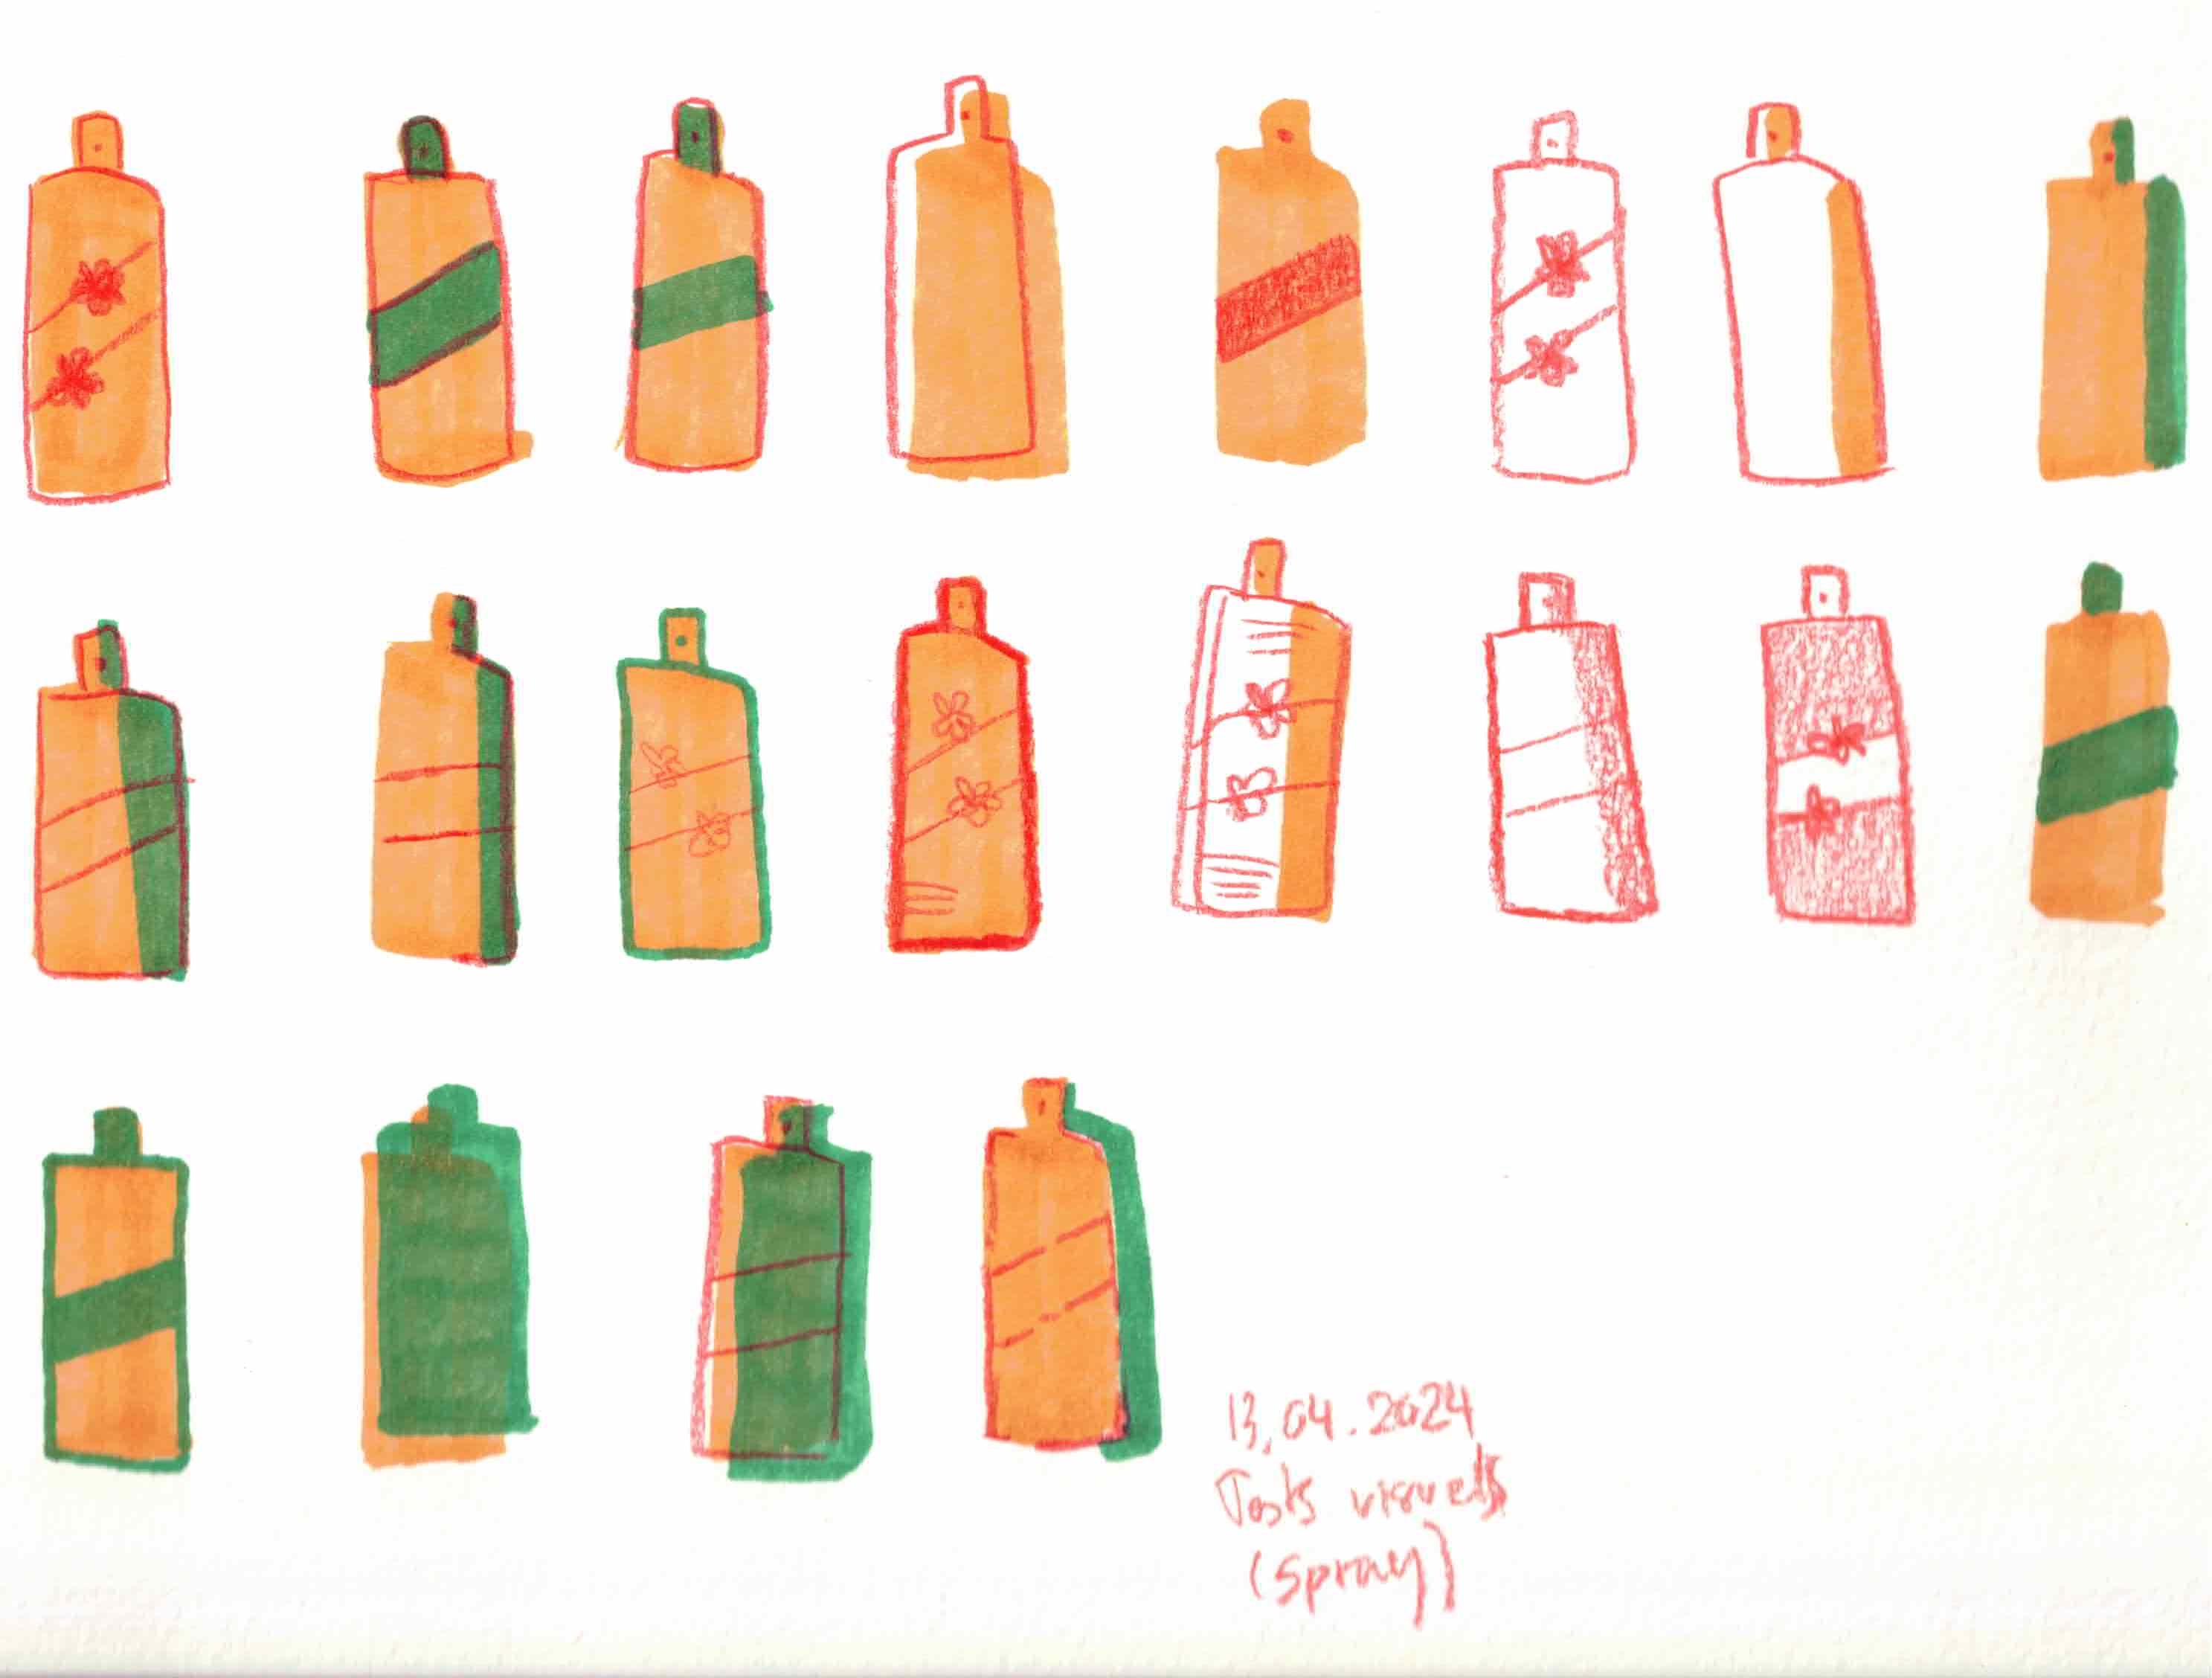 13.04.2024
Tests visuels
(spray)